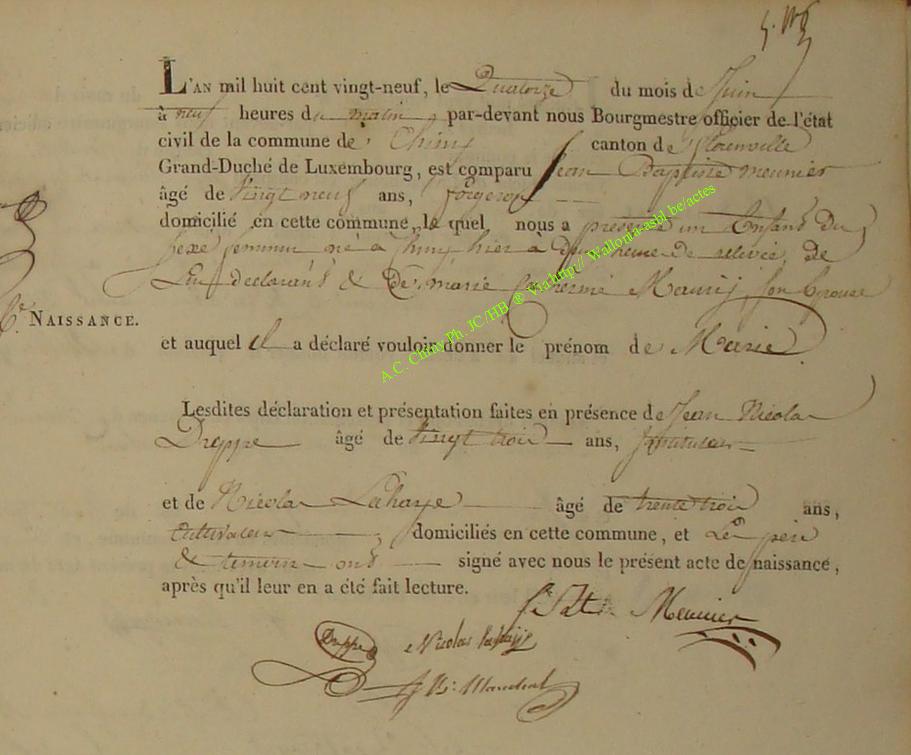 L'AN mil huit cent vingt-neuf, le Quatorze du mois de Juin
à neuf heures du matin, par-devant nous Bourgmestre officier de l'état
civil de la commune de Chiny canton de Florenville
Grand-Duché de Luxembourg, est comparu Jean Baptiste meunier
âgé de vingt neuf ans, forgeron
domicilié en cette commune, le quel nous a présenté un Enfant du
sexe feminin né a Chiny hier a heure de relevée, de
Lui declarant & De marie Catherine son Epouse
6e NAISSANCE.
et auquel il a déclaré vouloir donner le prénom de Marie
Lesdites déclaration et présentation faites en présence de Jean Nicolas
Dreppe âgé de vingt trois ans,
et de Nicolas Lahaye âgé de trente trois ans,
cultivateur, domiciliés en cette commune, et Les père
& temoins ont signé avec nous le présent acte de naissance,
après qu'il leur en a été fait lecture.
Meunier
Dreppe Nicolas Lahaye
Marechal
A.C. Chiny Ph. JC/HB @ Via http:// Wallonia-asbl.be/actes